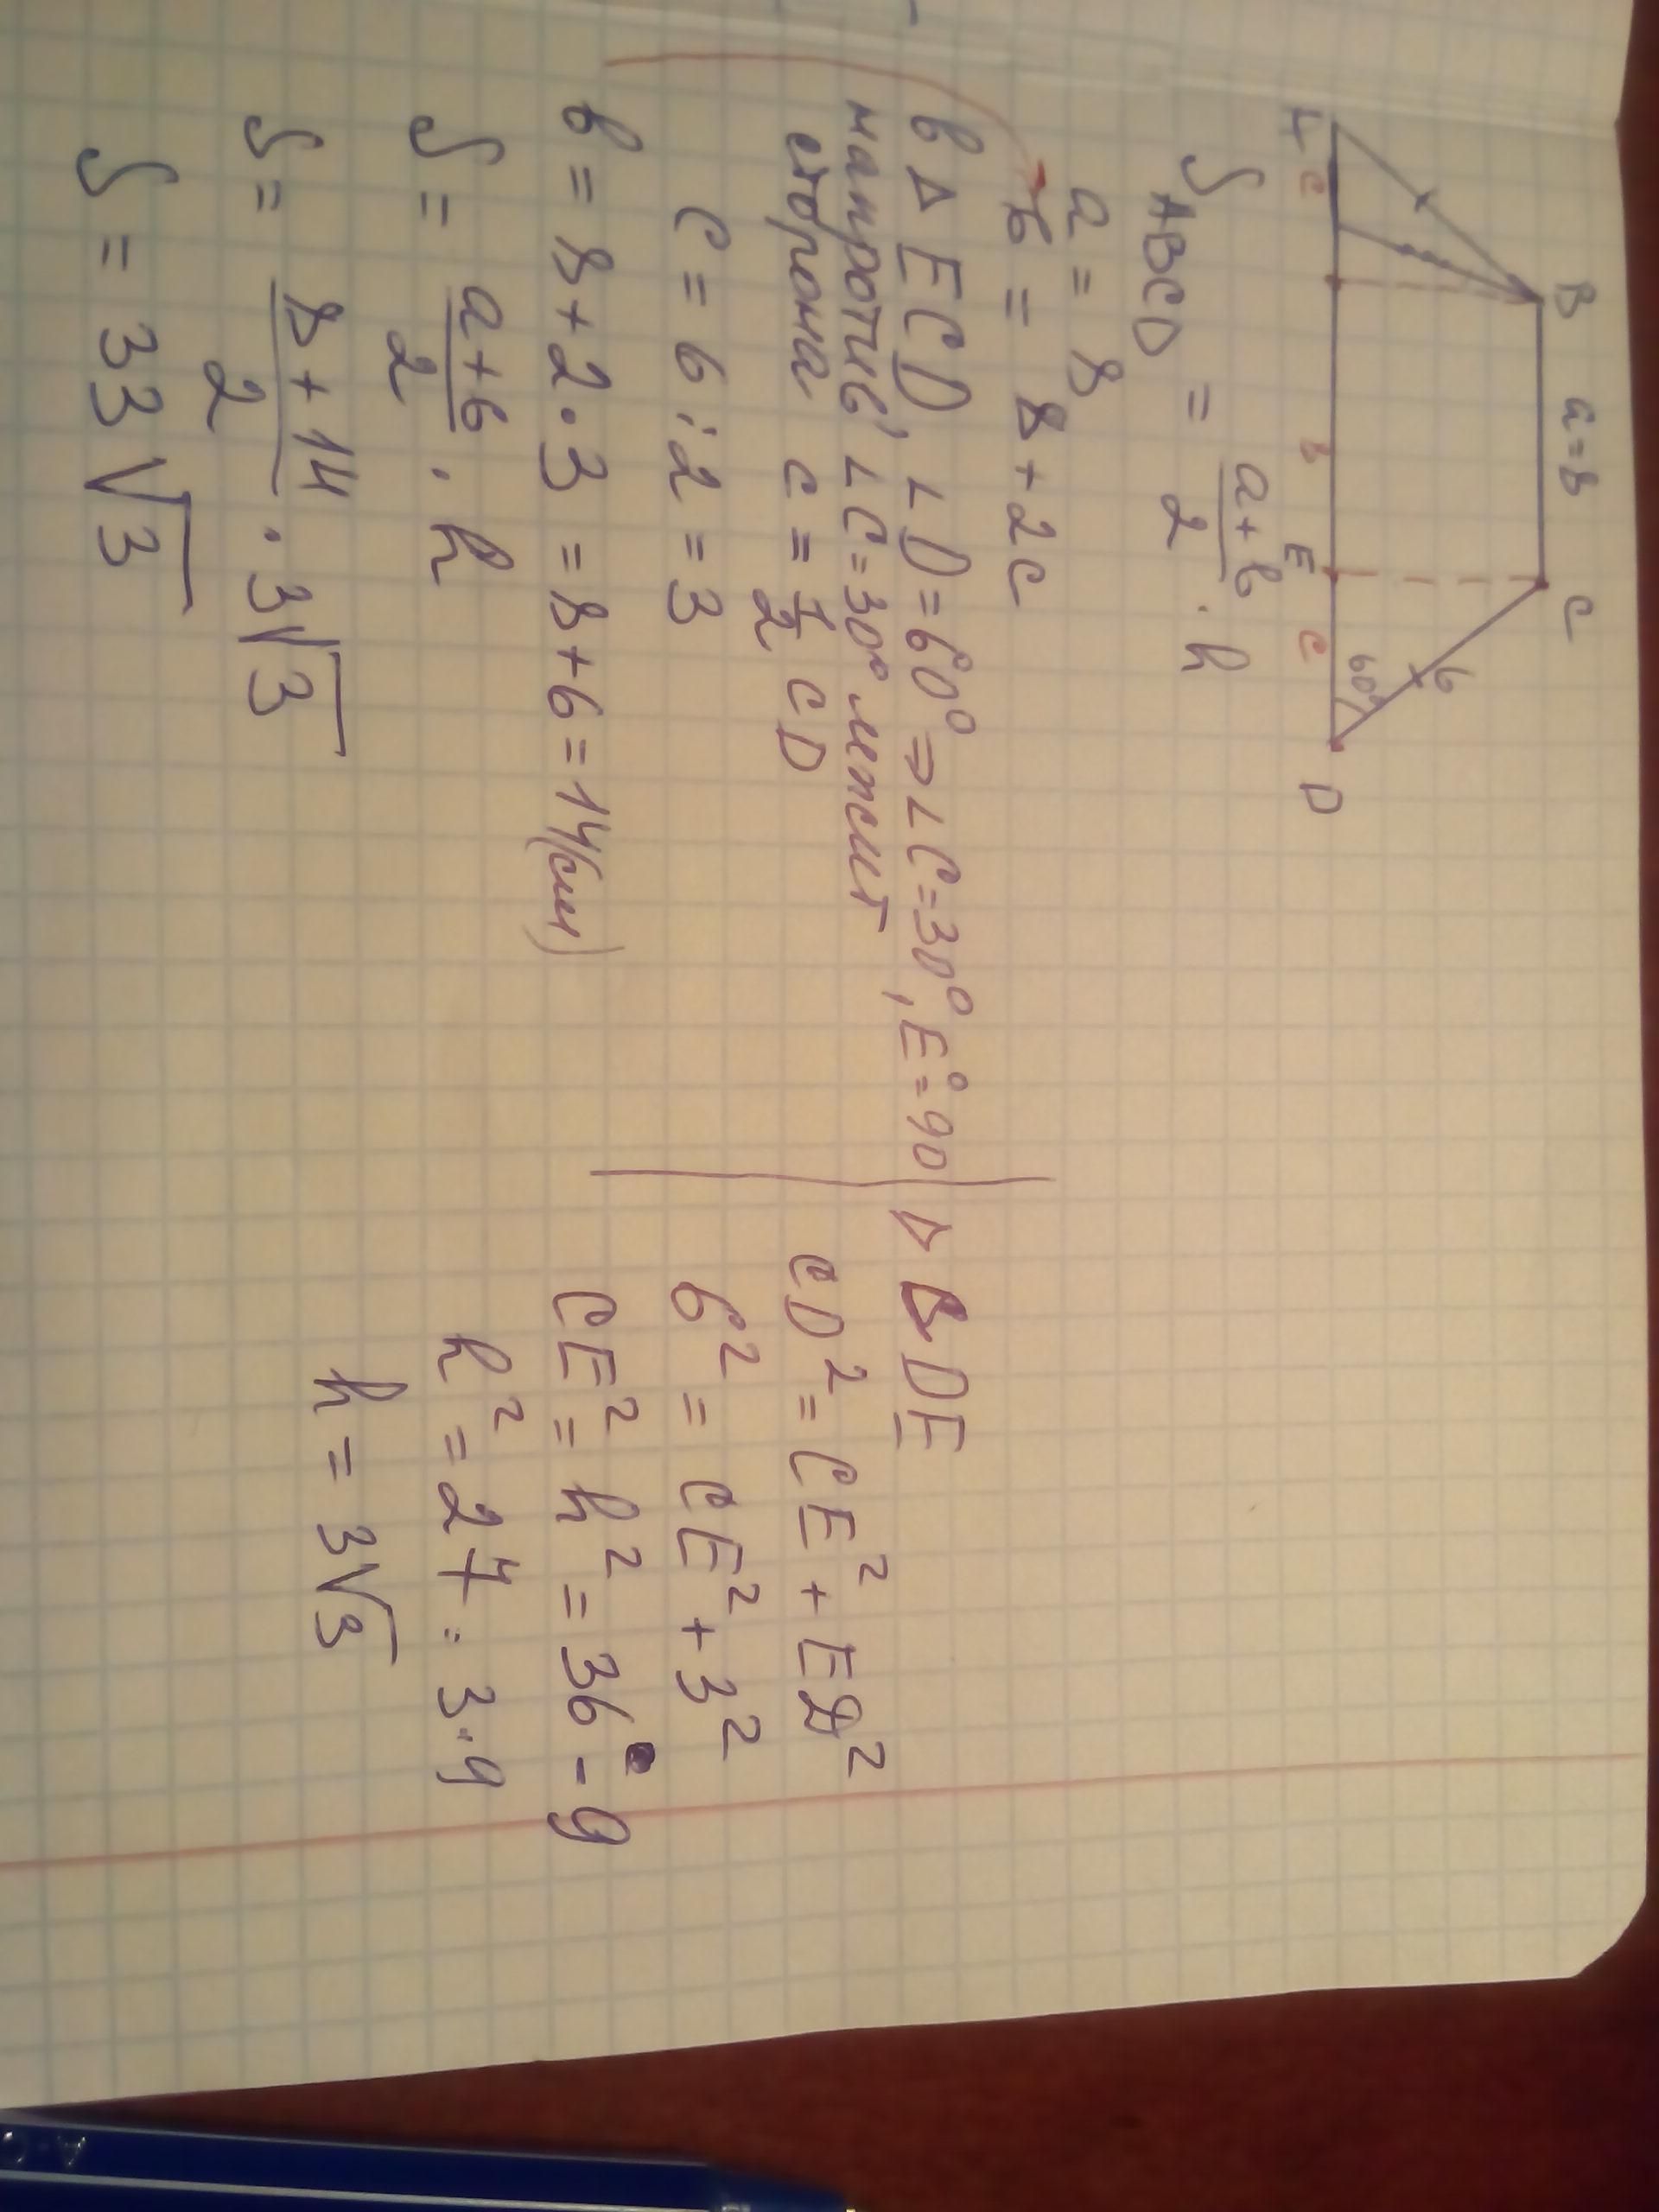 B a=8 C
6
60°
A c в E c D
S ABCD = a+b/2 · h
a = 8
в = 8 + 2c
в △ ECD, ∠D=60° ⇒ ∠C=30°, E°=90
напротив ∠C=30° лежит
сторона c = 1/2 CD
c = 6:2 = 3
в = 8+2·3 = 8+6=14(см)
S = a+в/2 · h
S = 8+14/2 · 3√3
S = 33√3
△ DE
CD² = CE² + ED²
6² = CE² + 3²
CE² = h² = 36 - 9
h² = 27 = 3·9
h = 3√3